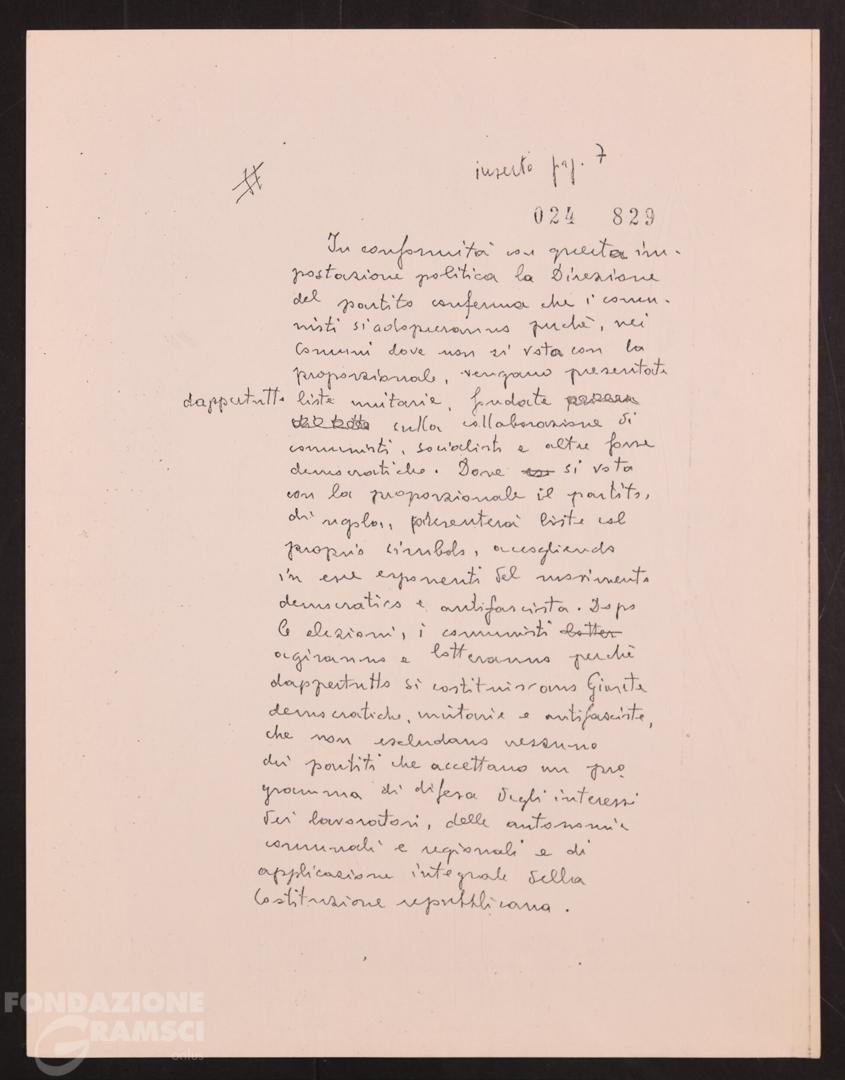 inserto pag. 7
024 829
In conformità con questa im-
postazione politica la Direzione
del partito conferma che i comu-
nisti si adopreranno perchè, nei
Comuni dove non si vota con la
proporzionale, vengano presentate
dappertutto liste unitarie, fondate
sulla collaborazione di
comunisti, socialisti e altre forze
democratiche. Dove si vota
con la proporzionale il partito,
di regola, presenterà liste col
proprio simbolo, accogliendo
in esse esponenti del movimento
democratico e antifascista. Dopo
le elezioni, i comunisti lotter
agiranno e lotteranno perchè
dappertutto si costituiscano Giunte
democratiche, unitarie e antifasciste,
che non escludano nessuno
dei partiti che accettano un pro
gramma di difesa degli interessi
dei lavoratori, delle autonomie
comunali e regionali e di
applicazione integrale della
Costituzione repubblicana.
FONDAZIONE
GRAMSCI
onlus